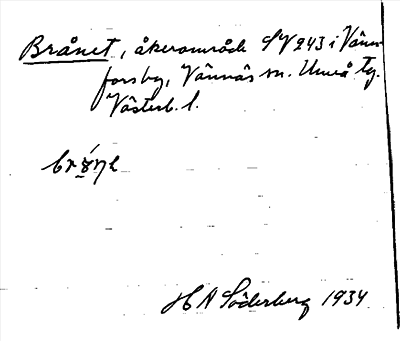 Brånet, åkerområde SV 243 i Vänn-
forsby, Vännäs sn. Umeå tg.
Västerb. l.
H A Söderberg 1934